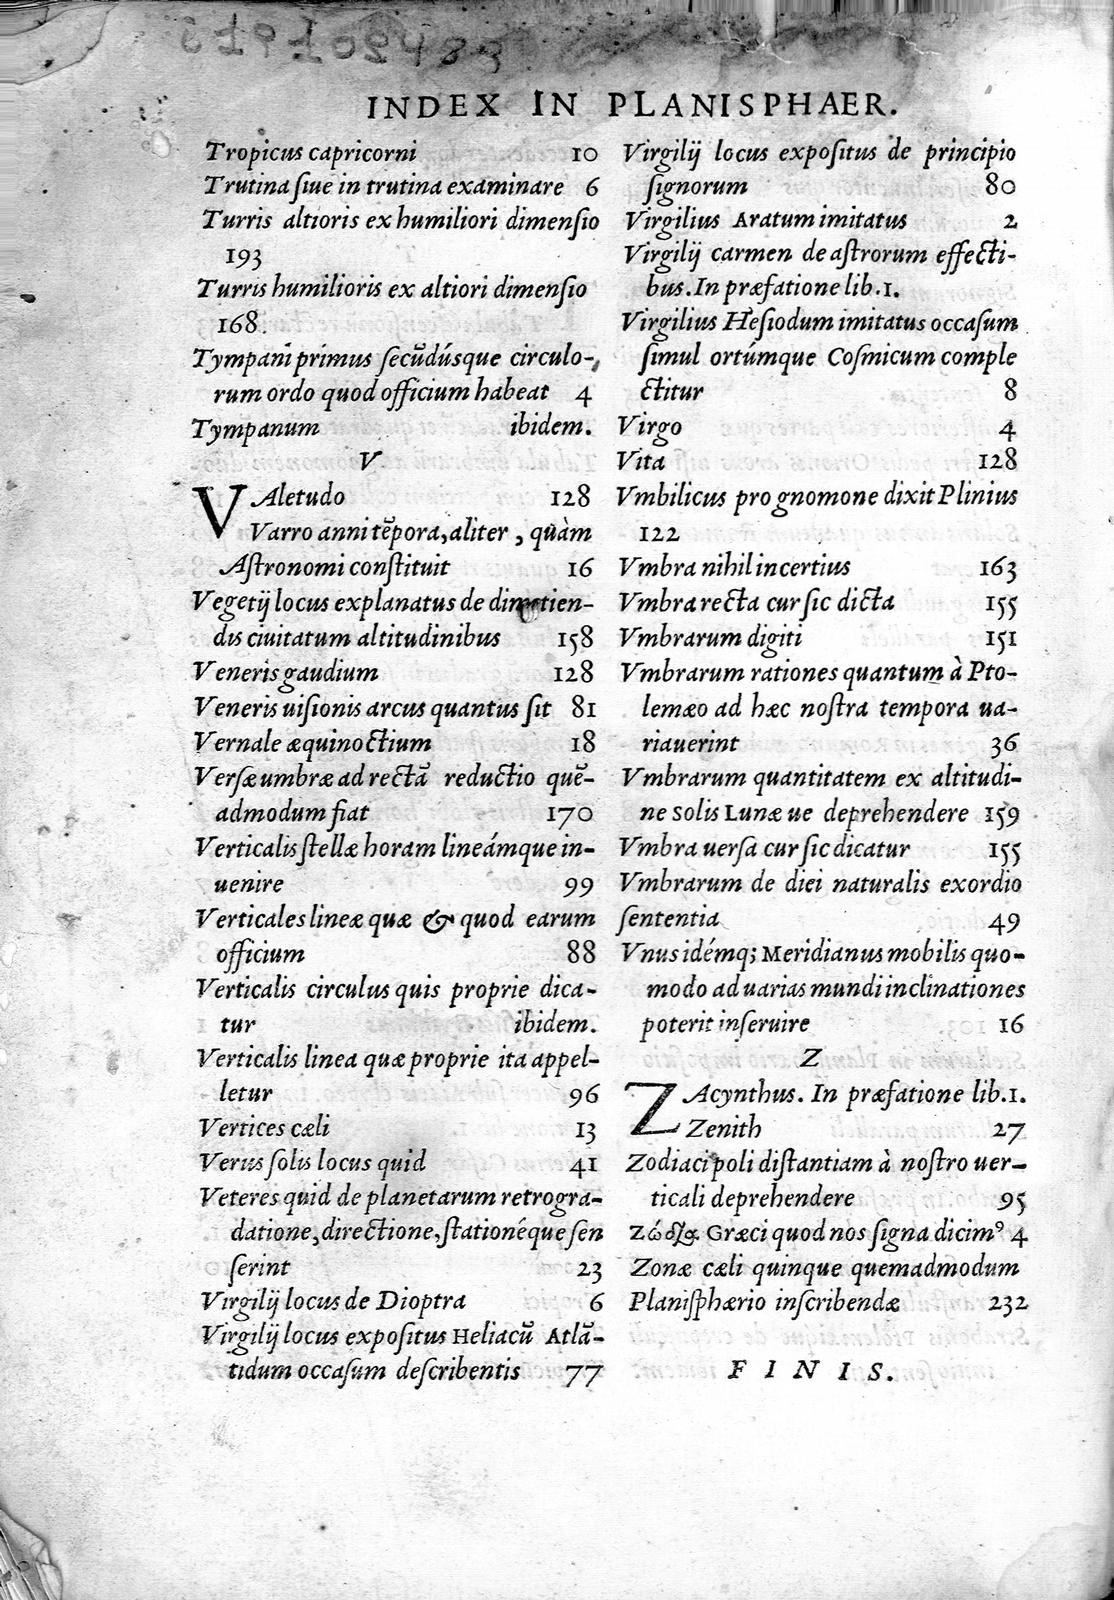 INDEX IN PLANISPHAER.
Tropicus capricorni 10
Trutina ſiue in trutina examinare 6
Turris altioris ex humiliori dimenſio
193
Turris humilioris ex altiori dimenſio
168.
Tympani primus ſecũdúsque circulo-
rum ordo quod officium habeat 4
Tympanum ibidem.
V
VAletudo 128
Varro anni tẽpora, aliter, quàm
Aſtronomi conſtituit 16
Vegetij locus explanatus de dimetien-
dis ciuitatum altitudinibus 158
Veneris gaudium 128
Veneris uiſionis arcus quantus ſit 81
Vernale æquinoctium 18
Verſæ umbræ ad rectã reductio quẽ-
admodum fiat 170
Verticalis ſtellæ horam lineámque in-
uenire 99
Verticales lineæ quæ & quod earum
officium 88
Verticalis circulus quis proprie dica-
tur ibidem.
Verticalis linea quæ proprie ita appel-
letur 96
Vertices cæli 13
Verus ſolis locus quid 41
Veteres quid de planetarum retrogra-
datione, directione, ſtationéque ſen
ſerint 23
Virgilij locus de Dioptra 6
Virgilij locus expoſitus Heliacũ Atlã-
tidum occaſum deſcribentis 77
Virgilij locus expoſitus de principio
ſignorum 80
Virgilius Aratum imitatus 2
Virgilij carmen de aſtrorum effecti-
bus. In præfatione lib.1.
Virgilius Heſiodum imitatus occaſum
ſimul ortúmque Coſmicum comple
ctitur 8
Virgo 4
Vita 128
Vmbilicus pro gnomone dixit Plinius
122
Vmbra nihil incertius 163
Vmbra recta cur ſic dicta 155
Vmbrarum digiti 151
Vmbrarum rationes quantum à Pto-
lemæo ad hæc noſtra tempora ua-
riauerint 36
Vmbrarum quantitatem ex altitudi-
ne Solis Lunæ ue deprehendere 159
Vmbra uerſa cur ſic dicatur 155
Vmbrarum de diei naturalis exordio
ſententia 49
Vnus idémq; Meridianus mobilis quo-
modo ad uarias mundi inclinationes
poterit inſeruire 16
Z
ZAcynthus. In præfatione lib.1.
Zenith 27
Zodiaci poli diſtantiam à noſtro uer-
ticali deprehendere 95
Græci quod nos ſigna dicimꝰ 4
Zonæ cæli quinque quemadmodum
Planiſphærio inſcribendæ 232
FINIS.